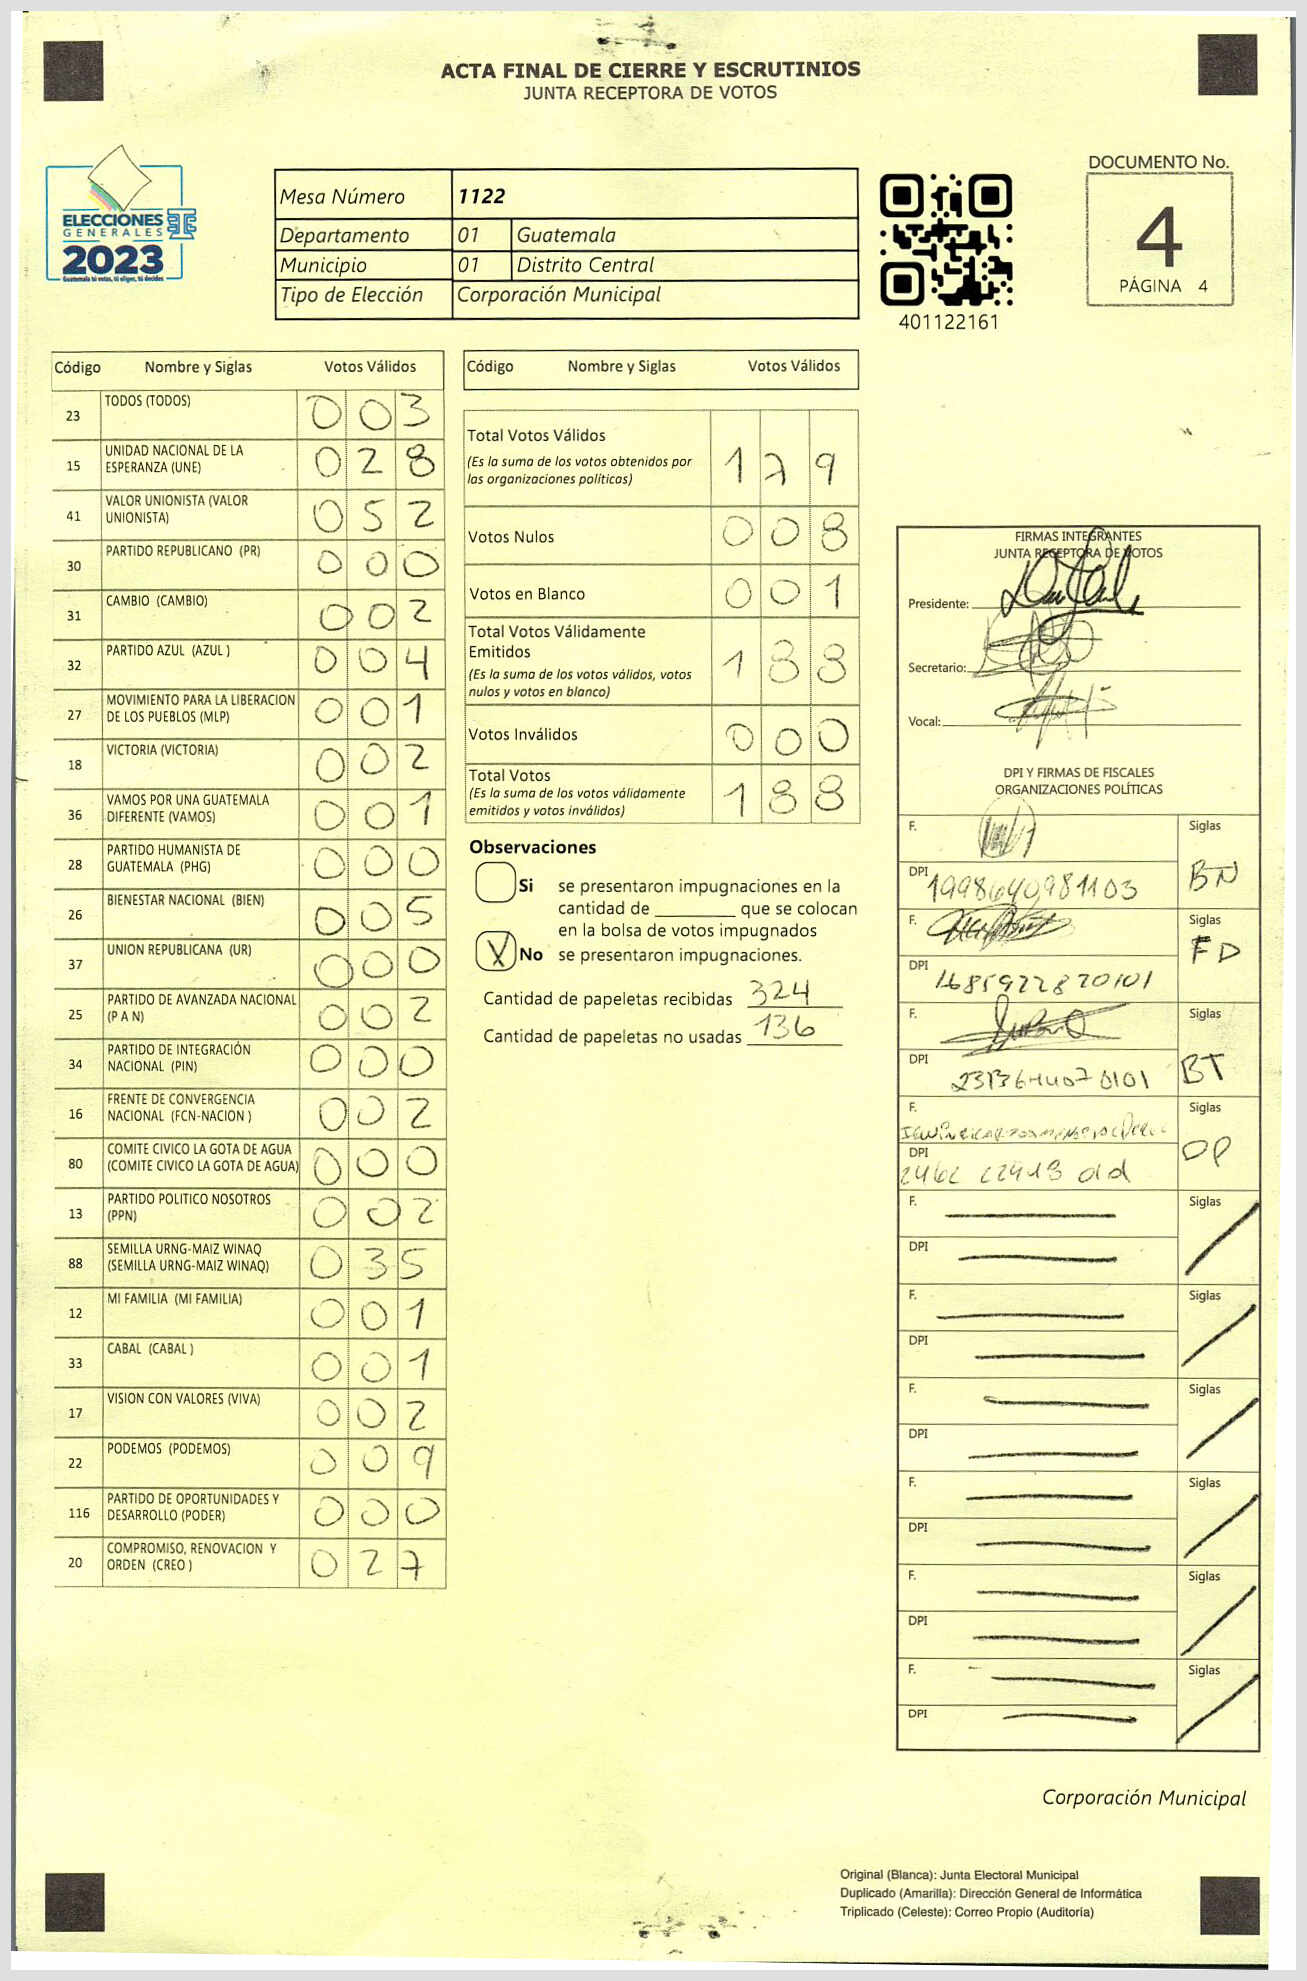 ACTA FINAL DE CIERRE Y ESCRUTINIOS
JUNTA RECEPTORA DE VOTOS
ELECCIONES
GENERALES
2023
Guatemala tú votas, tú eliges, tú decides
Mesa Número 1122
Departamento 01 Guatemala
Municipio 01 Distrito Central
Tipo de Elección Corporación Municipal
401122161
DOCUMENTO No.
4
PÁGINA 4
Código Nombre y Siglas Votos Válidos
23 TODOS (TODOS) 0 0 3
15 UNIDAD NACIONAL DE LA
ESPERANZA (UNE) 0 2 8
41 VALOR UNIONISTA (VALOR
UNIONISTA) 0 5 2
30 PARTIDO REPUBLICANO (PR) 0 0 0
31 CAMBIO (CAMBIO) 0 0 2
32 PARTIDO AZUL (AZUL ) 0 0 4
27 MOVIMIENTO PARA LA LIBERACION
DE LOS PUEBLOS (MLP) 0 0 1
18 VICTORIA (VICTORIA) 0 0 2
36 VAMOS POR UNA GUATEMALA
DIFERENTE (VAMOS) 0 0 1
28 PARTIDO HUMANISTA DE
GUATEMALA (PHG) 0 0 0
26 BIENESTAR NACIONAL (BIEN) 0 0 5
37 UNION REPUBLICANA (UR) 0 0 0
25 PARTIDO DE AVANZADA NACIONAL
(P A N) 0 0 2
34 PARTIDO DE INTEGRACIÓN
NACIONAL (PIN) 0 0 0
16 FRENTE DE CONVERGENCIA
NACIONAL (FCN-NACION ) 0 0 2
80 COMITE CIVICO LA GOTA DE AGUA
(COMITE CIVICO LA GOTA DE AGUA) 0 0 0
13 PARTIDO POLITICO NOSOTROS
(PPN) 0 0 2
88 SEMILLA URNG-MAIZ WINAQ
(SEMILLA URNG-MAIZ WINAQ) 0 3 5
12 MI FAMILIA (MI FAMILIA) 0 0 1
33 CABAL (CABAL ) 0 0 1
17 VISION CON VALORES (VIVA) 0 0 2
22 PODEMOS (PODEMOS) 0 0 9
116 PARTIDO DE OPORTUNIDADES Y
DESARROLLO (PODER) 0 0 0
20 COMPROMISO, RENOVACION Y
ORDEN (CREO ) 0 2 7
Código Nombre y Siglas Votos Válidos
Total Votos Válidos
(Es la suma de los votos obtenidos por
las organizaciones políticas) 1 7 9
Votos Nulos 0 0 8
Votos en Blanco 0 0 1
Total Votos Válidamente
Emitidos
(Es la suma de los votos válidos, votos
nulos y votos en blanco) 1 8 8
Votos Inválidos 0 0 0
Total Votos
(Es la suma de los votos válidamente
emitidos y votos inválidos) 1 8 8
Observaciones
Si se presentaron impugnaciones en la
cantidad de ________ que se colocan
en la bolsa de votos impugnados
X No se presentaron impugnaciones.
Cantidad de papeletas recibidas 324
Cantidad de papeletas no usadas 136
FIRMAS INTEGRANTES
JUNTA RECEPTORA DE VOTOS
Presidente:
Secretario:
Vocal:
DPI Y FIRMAS DE FISCALES
ORGANIZACIONES POLÍTICAS
F. Siglas
DPI 1998640981103 BN
F. Siglas
DPI 1685922870101 FD
F. Siglas
DPI BT
F. Siglas
DPI OP
F. Siglas
DPI
F. Siglas
DPI
F. Siglas
DPI
F. Siglas
DPI
F. Siglas
DPI
F. Siglas
DPI
Corporación Municipal
Original (Blanca): Junta Electoral Municipal
Duplicado (Amarilla): Dirección General de Informática
Triplicado (Celeste): Correo Propio (Auditoría)